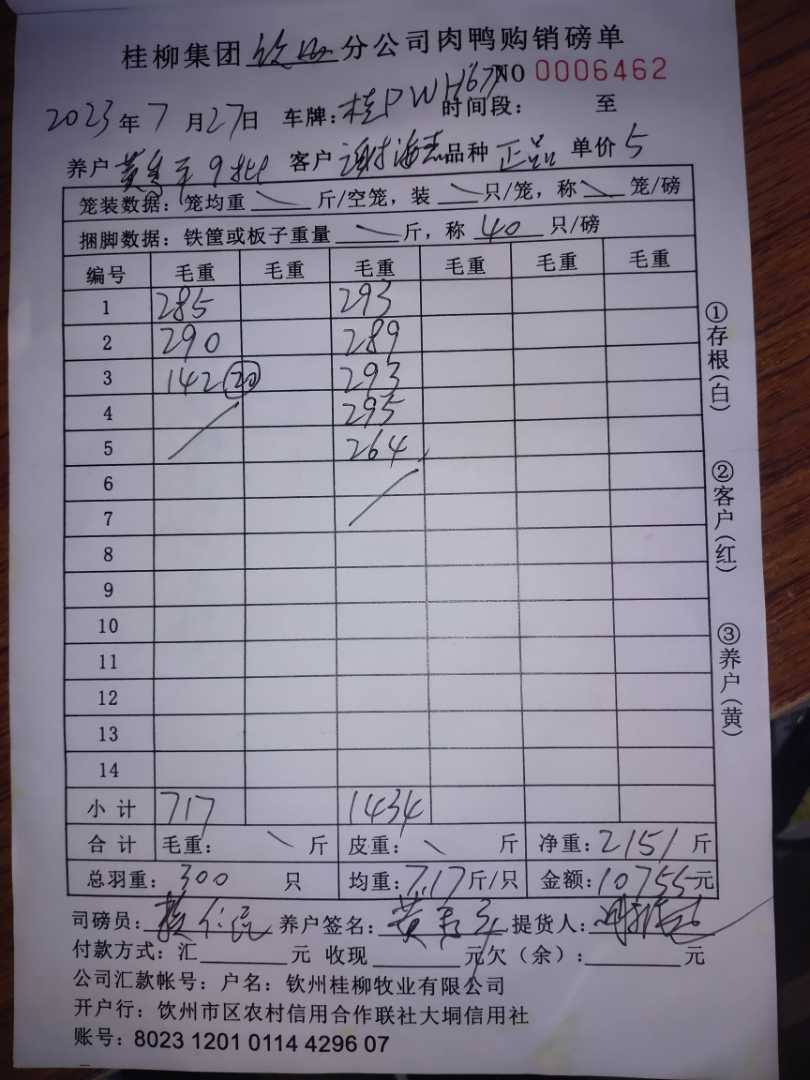 桂柳集团 钦州 分公司肉鸭购销磅单
NO 0006462
2023年7月27日 车牌:桂PWH677 时间段: 至
养户 黄 平9批 客户 谢海 品种 正品 单价 5
笼装数据:笼均重 斤/空笼,装 只/笼,称 笼/磅
捆脚数据:铁筐或板子重量 斤,称 40 只/磅
编号 毛重 毛重 毛重 毛重 毛重 毛重
1 285 293
2 290 289
3 142 20 293
4 295
5 264
6
7
8
9
10
11
12
13
14
小计 717 1434
合计 毛重: 斤 皮重: 斤 净重:2151斤
总羽重:300 只 均重:7.17斤/只 金额:10755元
司磅员: 养户签名:黄 提货人:
付款方式:汇 元 收现 元欠(余): 元
公司汇款帐号:户名:钦州桂柳牧业有限公司
开户行:饮州市区农村信用合作联社大垌信用社
账号:8023 1201 0114 4296 07
①存根(白)
②客户(红)
③养户(黄)